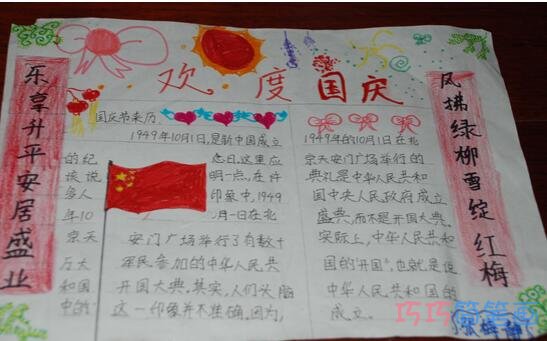 欢度国庆
乐享升平安居盛业
国庆节来历
1949年10月1日,是新中国成立
的纪念日,这里应
该说明一点,在许
多人印象中,1949
年10月一日在北
京天
安门广场举行了有数十
万大军民参加的中华人民共
和国开国大典。其实,人们头脑
中的这一印象并不准确。因为,
1949年的10月1日在北
京天安门广场举行的
典礼是中华人民共和
国中央人民政府成立
盛典,而不是开国大典。
实际上,中华人民共和
国的"开国",也就是说
中华人民共和国的
成立。
风拂绿柳雪绽红梅
巧巧简笔画